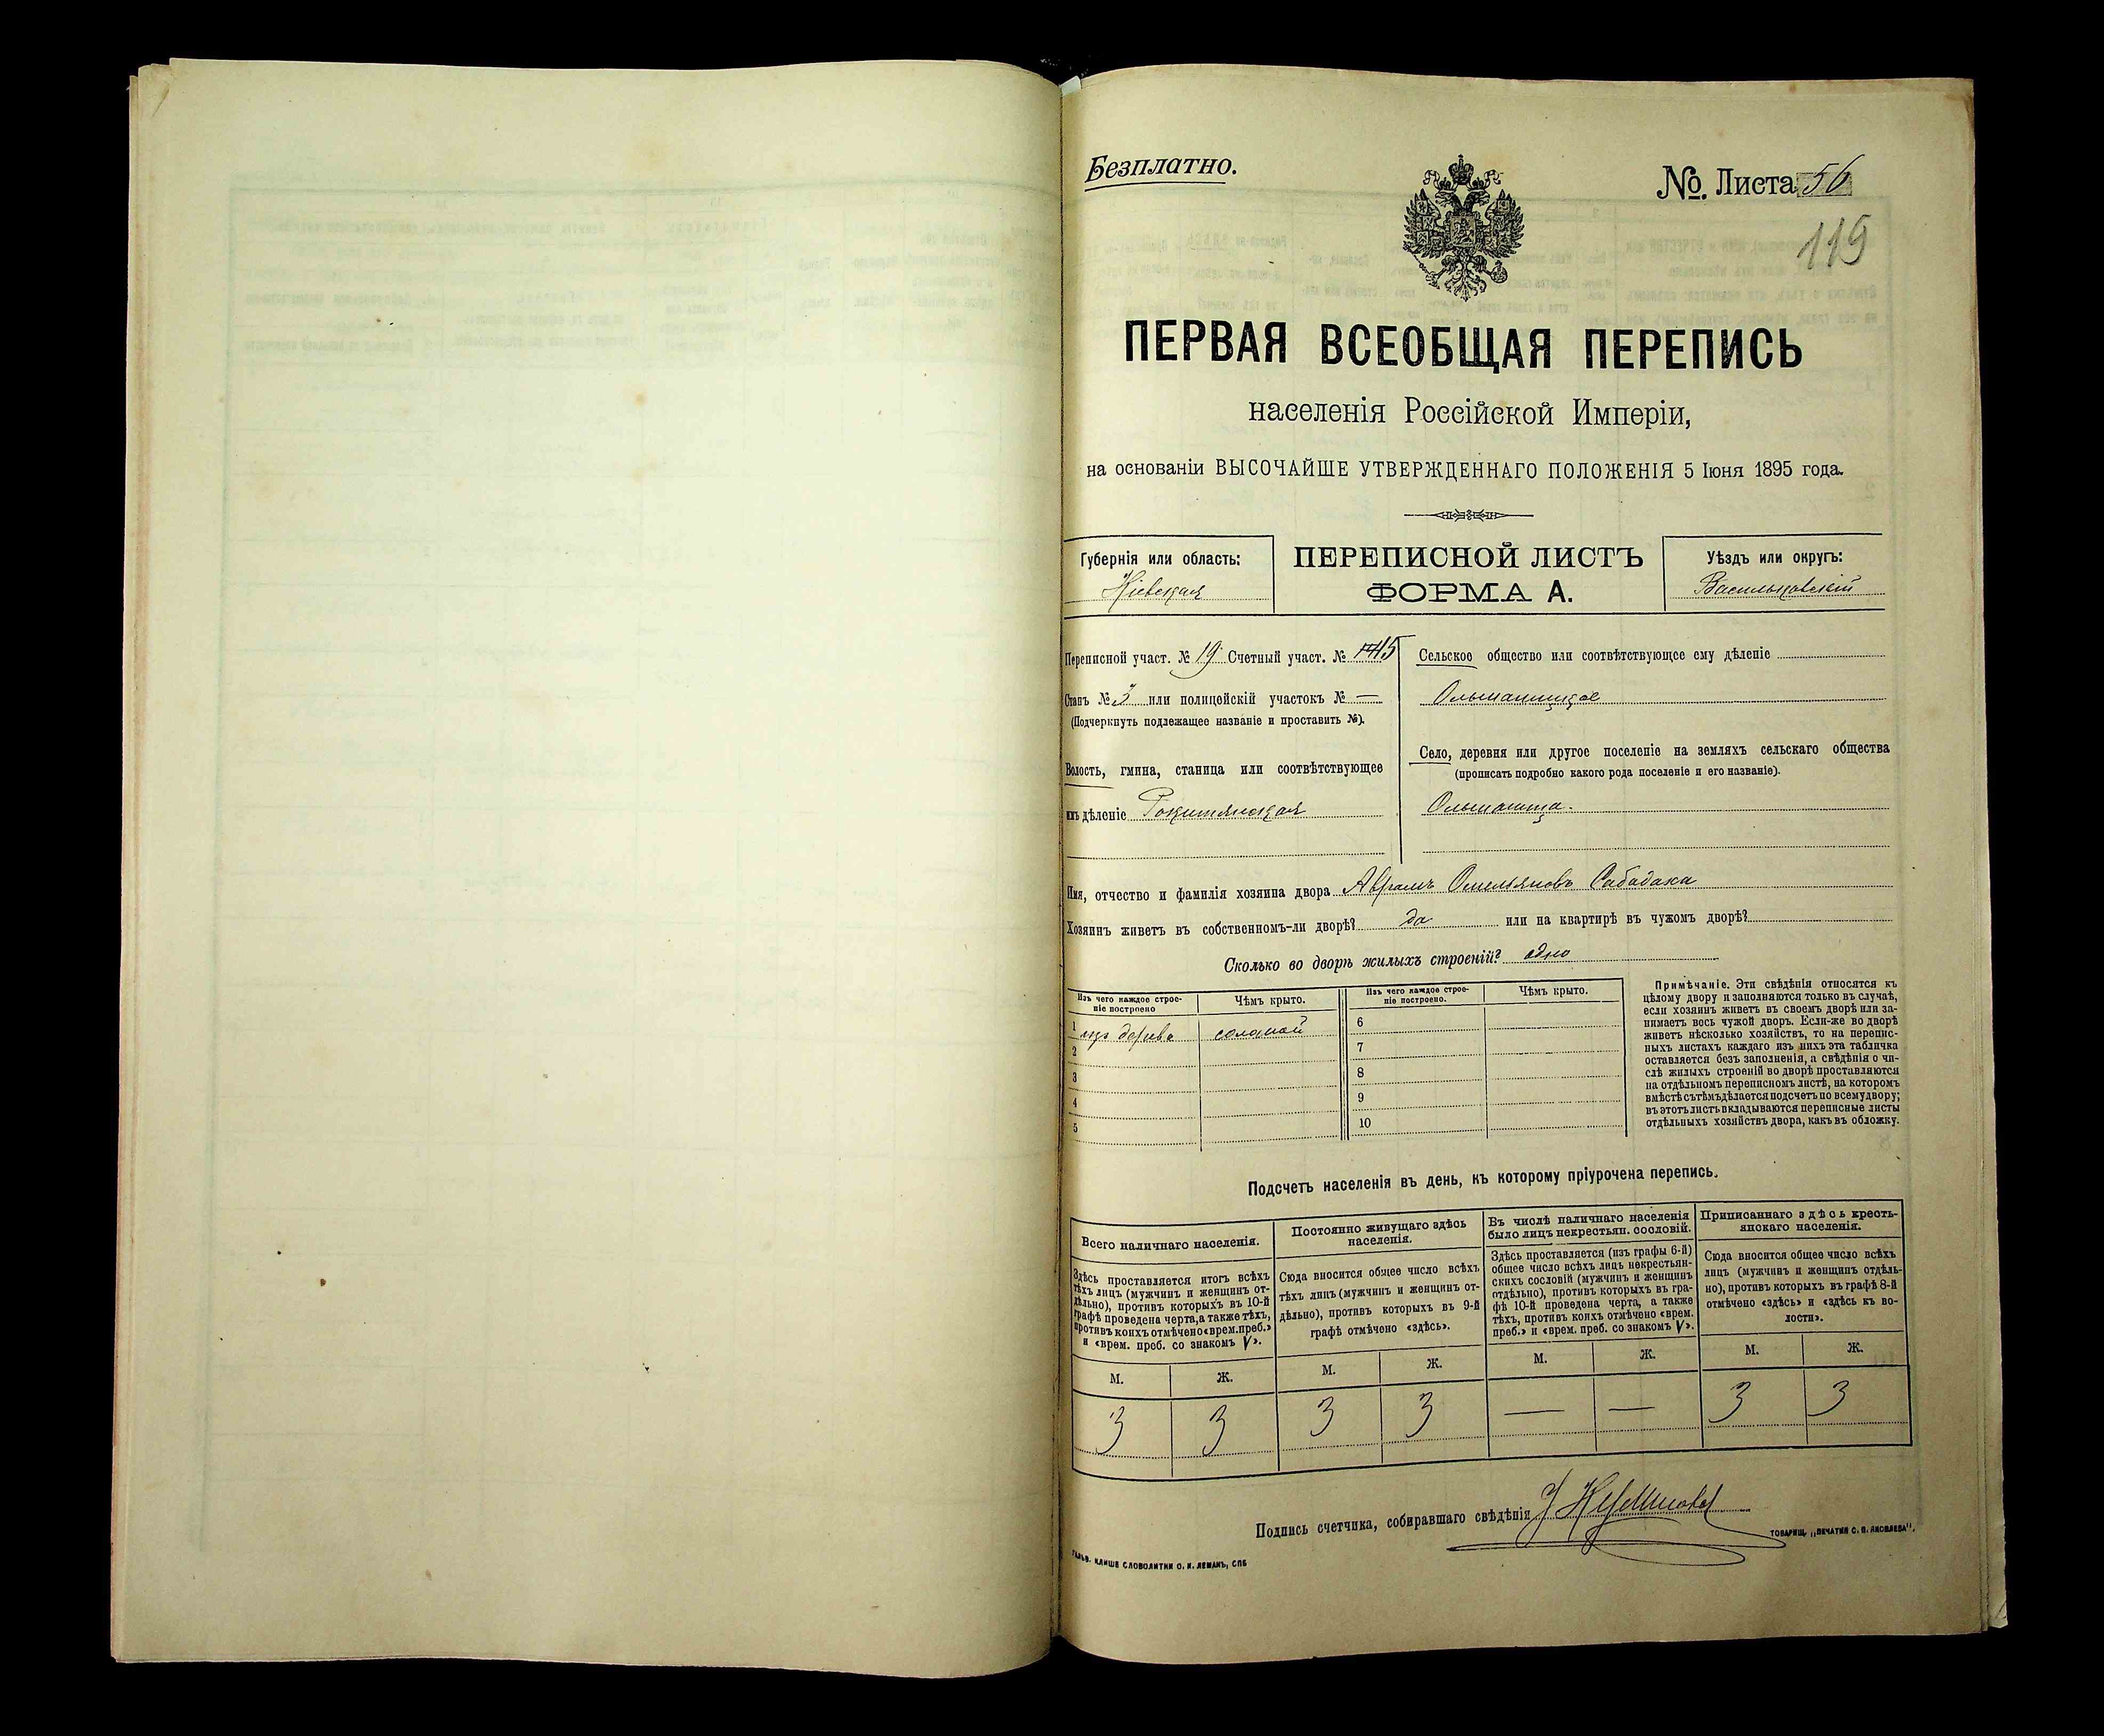 Безплатно.
№. Листа 56
119
ПЕРВАЯ ВСЕОБЩАЯ ПЕРЕПИСЬ
населенія Россійской Имперіи,
на основаніи ВЫСОЧАЙШЕ УТВЕРЖДЕННАГО ПОЛОЖЕНІЯ 5 Іюня 1895 года.
Губернія или область:
Кіевская
ПЕРЕПИСНОЙ ЛИСТЪ
ФОРМА А.
Уѣздъ или округъ:
Васильковскій
Переписной участ. № 19 Счетный участ. №
Станъ № 3 или полицейскій участокъ № —
(Подчеркнуть подлежащее названіе и проставить №).
Волость, гмина, станица или соотвѣтствующее
имъ дѣленіе Рокитянская
Сельское общество или соотвѣтствующее ему дѣленіе
Ольшаницкое
Село, деревня или другое поселеніе на земляхъ сельскаго общества
(прописать подробно какого рода поселеніе и его названіе).
Ольшаница.
Имя, отчество и фамилія хозяина двора Аврамъ Омельяновъ Сабадака
Хозяинъ живетъ въ собственномъ-ли дворѣ? да или на квартирѣ въ чужомъ дворѣ?
Сколько во дворѣ жилыхъ строеній? одно
Изъ чего каждое строе-
ніе построено
Чѣмъ крыто.
1 изъ дерева соломой
2
3
4
5
Изъ чего каждое строе-
ніе построено.
Чѣмъ крыто.
6
7
8
9
10
Примѣчаніе. Эти свѣдѣнія относятся къ
цѣлому двору и заполняются только въ случаѣ,
если хозяинъ живетъ въ своемъ дворѣ или за-
нимаетъ весь чужой дворъ. Если-же во дворѣ
живетъ нѣсколько хозяйствъ, то на перепис-
ныхъ листахъ каждаго изъ нихъ эта табличка
оставляется безъ заполненія, а свѣдѣнія о чи-
слѣ жилыхъ строеній во дворѣ проставляются
на отдѣльномъ переписномъ листѣ, на которомъ
вмѣстѣ съ тѣмъ дѣлается подсчетъ по всему двору;
въ этотъ листъ вкладываются переписные листы
отдѣльныхъ хозяйствъ двора, какъ въ обложку.
Подсчетъ населенія въ день, къ которому пріурочена перепись.
Всего наличнаго населенія.
Здѣсь проставляется итогъ всѣхъ
тѣхъ лицъ (мужчинъ и женщинъ от-
дѣльно), противъ которыхъ въ 10-й
графѣ проведена черта, а также тѣхъ,
противъ коихъ отмѣчено «врем. преб.»
и «врем. преб. со знакомъ V».
М. Ж.
3 3
Постоянно живущаго здѣсь
населенія.
Сюда вносится общее число всѣхъ
тѣхъ лицъ (мужчинъ и женщинъ от-
дѣльно), противъ которыхъ въ 9-й
графѣ отмѣчено «здѣсь».
М. Ж.
3 3
Въ числѣ наличнаго населенія
было лицъ некрестьян. сословій.
Здѣсь проставляется (изъ графы 6-й)
общее число всѣхъ лицъ некрестьян-
скихъ сословій (мужчинъ и женщинъ
отдѣльно), противъ которыхъ въ гра-
фѣ 10-й проведена черта, а также
тѣхъ, противъ коихъ отмѣчено «врем.
преб.» и «врем. преб. со знакомъ V».
М. Ж.
— —
Приписаннаго здѣсь кресть-
янскаго населенія.
Сюда вносится общее число всѣхъ
лицъ (мужчинъ и женщинъ отдѣль-
но), противъ которыхъ въ графѣ 8-й
отмѣчено «здѣсь» и «здѣсь къ во-
лости».
М. Ж.
3 3
Подпись счетчика, собиравшаго свѣдѣнія
ГАЛЬВ. КЛИШЕ СЛОВОЛИТНИ О. И. ЛЕМАНЪ, СПБ
ТОВАРИЩ. „ПЕЧАТНЯ С. П. ЯКОВЛЕВА".